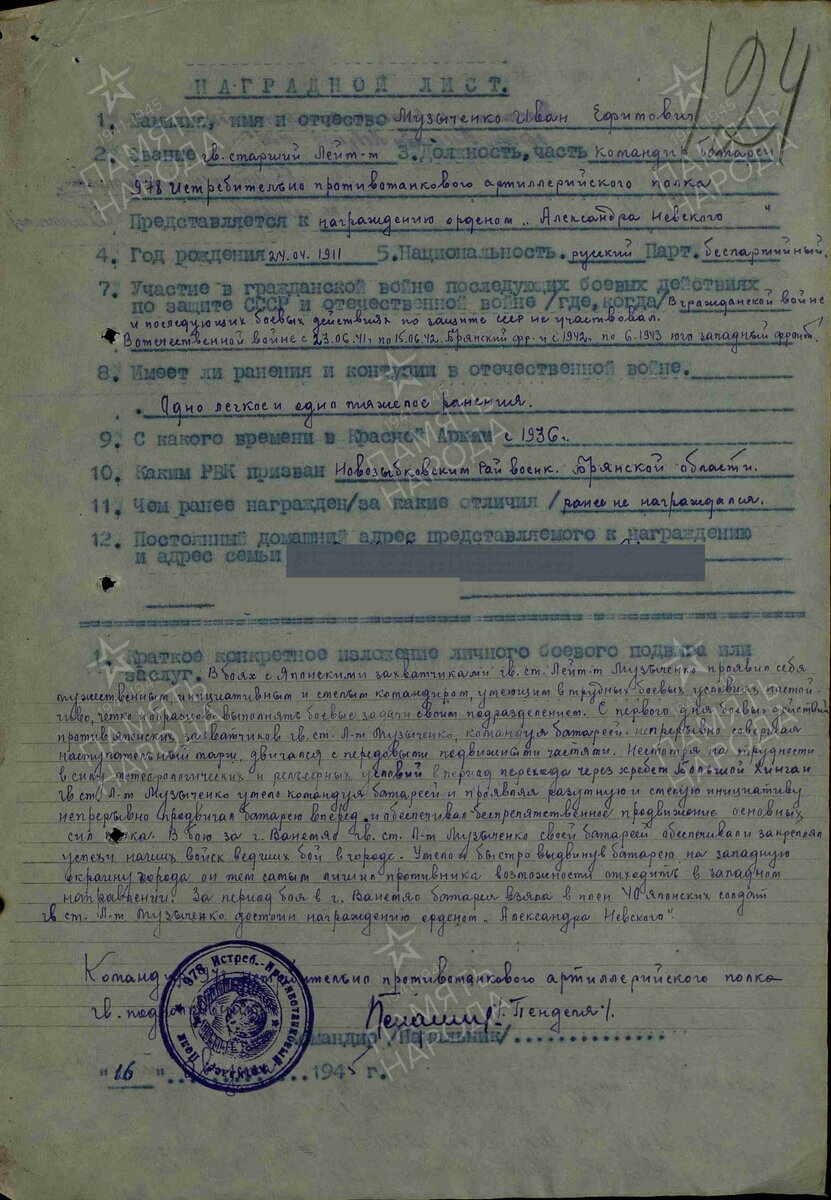 194
НАГРАДНОЙ ЛИСТ.
1. Фамилия, имя и отчество Музыченко Иван Ефитович
2. Звание гв. старший Лейт-т 3. Должность, часть командир батареи
978 Истребительно противотанкового артиллерийского полка
Представляется к награждению орденом „Александра Невского"
4. Год рождения 24.04.1911 5. Национальность. русский Парт. беспартийный.
7. Участие в гражданской войне последующих боевых действиях
по защите СССР и отечественной войне /где, когда/ В гражданской войне
и последующих боевых действиях по защите ссср не участвовал.
В отечественной войне с 23.06.41г. по 15.06.42. Брянский фр-т и с 1942г. по 6.1943 юго западный фронт.
8. Имеет ли ранения и контузии в отечественной войне.
Одно легкое и одно тяжелое ранения.
9. С какого времени в Красной Армии с 1936 г.
10. Каким РВК призван Новозыбковским Рай военк. Брянской области.
11. Чем ранее награжден/за какие отличия/ ранее не награждался.
12. Постоянный домашний адрес представляемого к награждению
и адрес семьи
1. Краткое конкретное изложение личного боевого подвига или
заслуг. В боях с Японскими захватчиками гв. ст. Лейт-т Музыченко проявил себя
мужественным инициативным и смелым командиром, умеющим в трудных боевых условиях настой-
чиво, четко и образцово выполнять боевые задачи своим подразделением. С первого дня боевых действий
против японских захватчиков гв. ст. Л-т Музыченко, командуя батареей непрерывно совершал
наступательный марш, двигался с передовыми подвижными частями. Несмотря на трудности
в силу метеорологических и рельефных условий в период перехода через хребет Большой Хинган
гв. ст. Л-т Музыченко умело командуя батареей и проявляя разумную и смелую инициативу
непрерывно продвигал батарею вперед и обеспечивал беспрепятственное продвижение основных
сил полка. В бою за г. Ванемяо гв. ст. Л-т Музыченко своей батареей обеспечивал и закреплял
успехи наших войск ведших бой в городе. Умело и быстро выдвинув батарею на западную
окраину города он тем самым лишил противника возможности отходить в западном
направлении. За период боя в г. Ванемяо батарея взяла в плен 40 японских солдат
гв ст. Л-т Музыченко достоин награждению орденом „Александра Невского".
Команди 978 истребительно противотанкового артиллерийского полка
гв. подп /Пенделя/.
Командир /Начальник/
"16" 1945 г.
978 Истреб.-Противотанковый Артиллер. Полк
ПАМЯТЬ НАРОДА
1941-1945